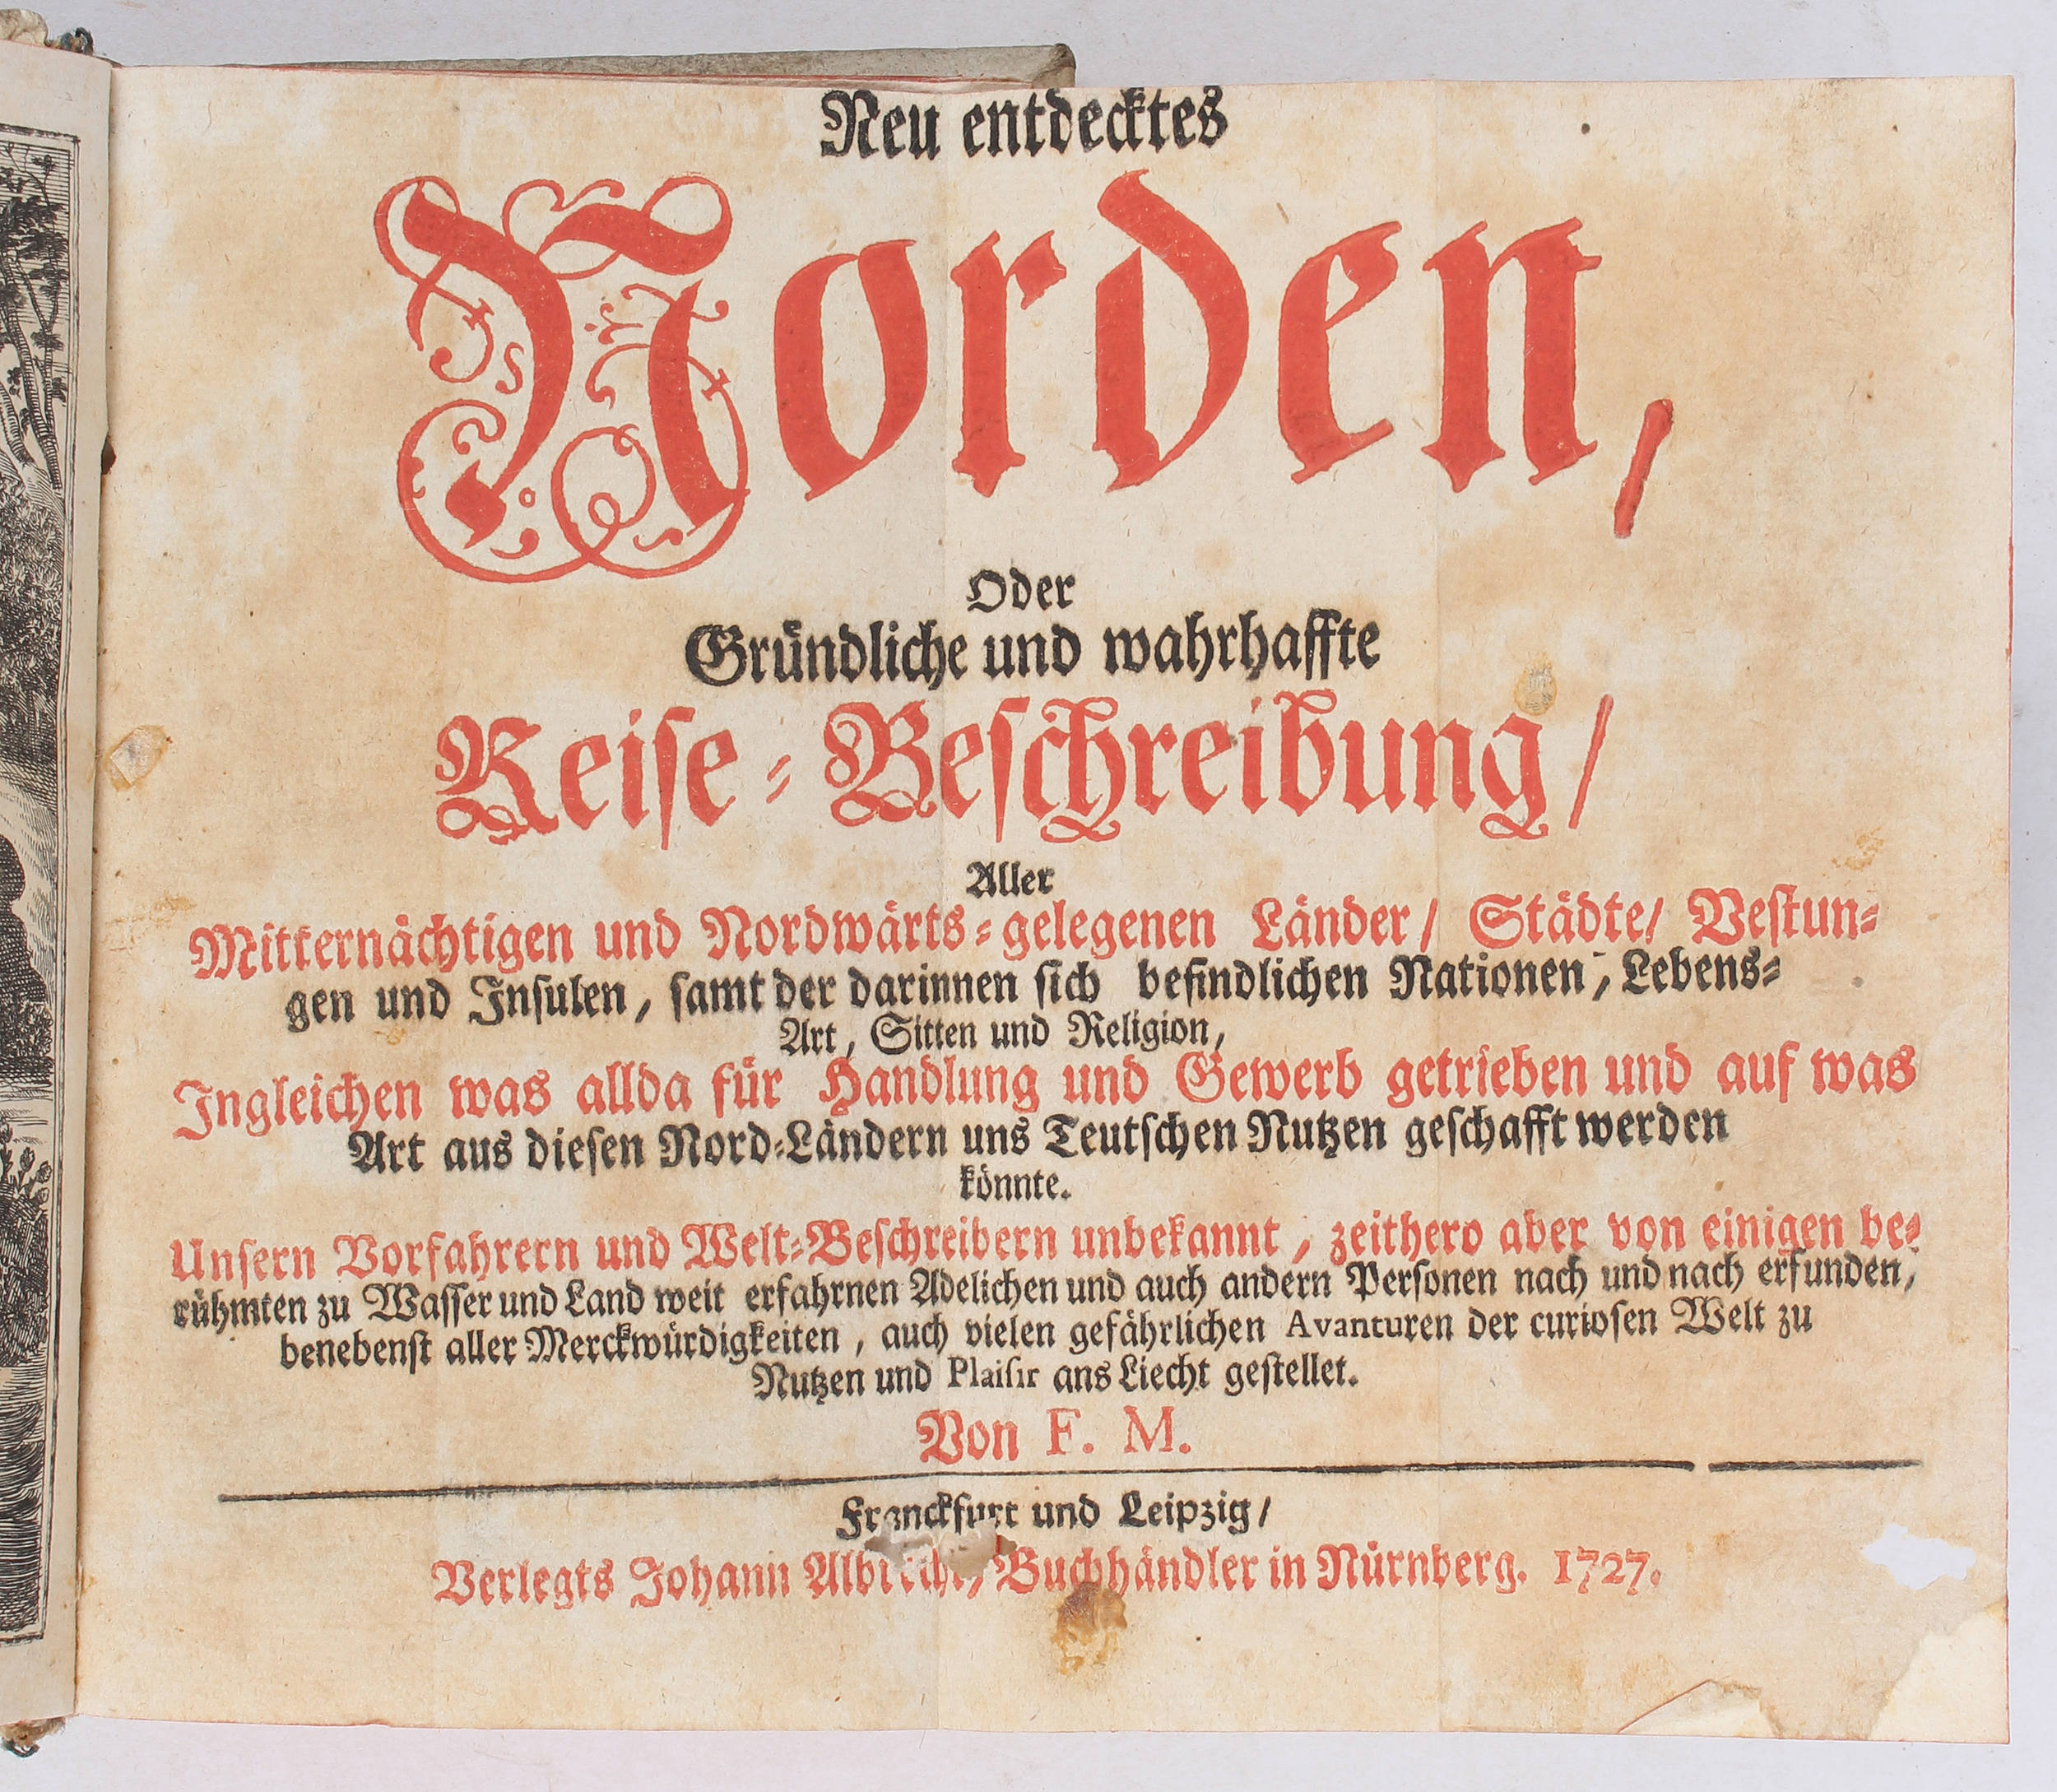 Neu entdecktes
Norden,
Oder
Gründliche und wahrhaffte
Reise-Beschreibung/
Aller
Mitternächtigen und Nordwärts-gelegenen Länder/ Städte/ Vestun-
gen und Insulen, samt der darinnen sich befindlichen Nationen, Lebens-
Art, Sitten und Religion,
Ingleichen was allda für Handlung und Gewerb getrieben und auf was
Art aus diesen Nord-Ländern uns Teutschen Nutzen geschafft werden
könnte.
Unsern Vorfahrern und Welt-Beschreibern unbekannt, zeithero aber von einigen be-
rühmten zu Wasser und Land weit erfahrnen Adelichen und auch andern Personen nach und nach erfunden,
benebenst aller Merckwürdigkeiten, auch vielen gefährlichen Avanturen der curiosen Welt zu
Nutzen und Plaisir ans Liecht gestellet.
Von F. M.
Franckfurt und Leipzig/
Verlegts Johann Albrecht, Buchhändler in Nürnberg. 1727.